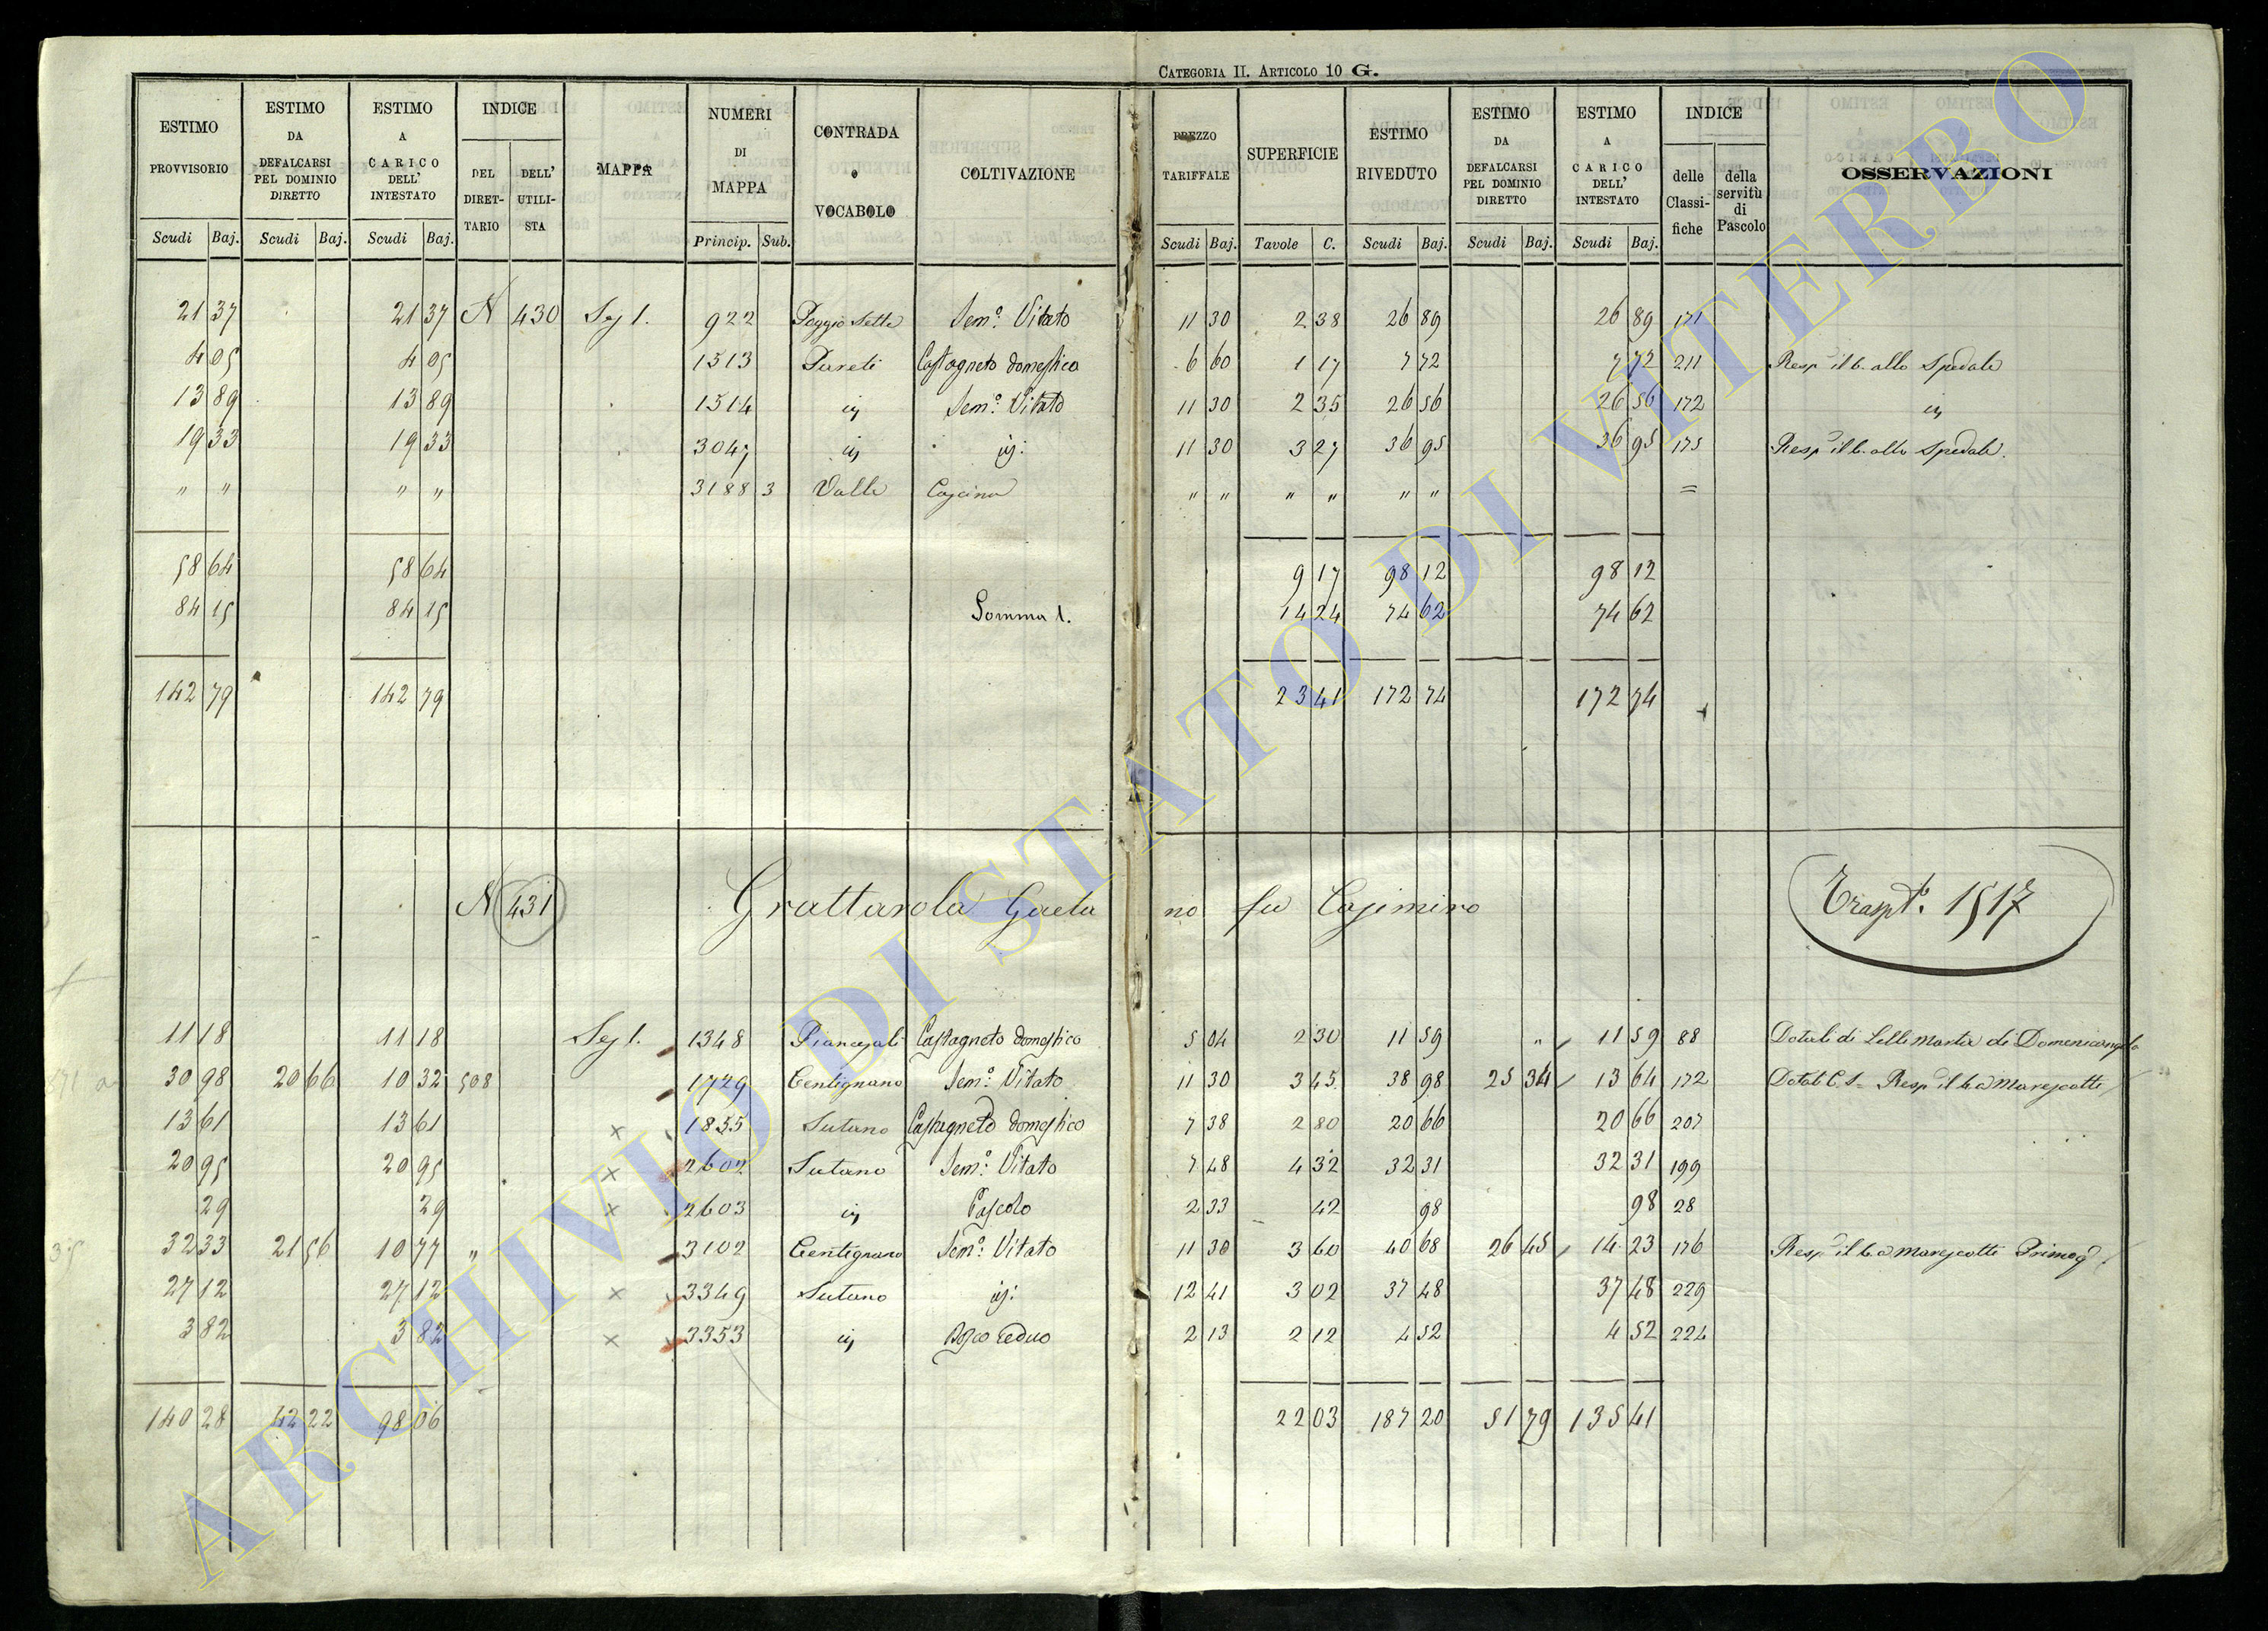 CATEGORIA II. ARTICOLO 10 G.
ESTIMO PROVVISORIO | ESTIMO DA DEFALCARSI PEL DOMINIO DIRETTO | ESTIMO A CARICO DELL' INTESTATO | INDICE | MAPPA | NUMERI DI MAPPA | CONTRADA o VOCABOLO | COLTIVAZIONE | PREZZO TARIFFALE | SUPERFICIE | ESTIMO RIVEDUTO | ESTIMO DA DEFALCARSI PEL DOMINIO DIRETTO | ESTIMO A CARICO DELL' INTESTATO | INDICE | OSSERVAZIONI
DEL DIRETTARIO | DELL' UTILISTA | delle Classifiche | della servitù di Pascolo
Scudi Baj. | Scudi Baj. | Scudi Baj. | Princip. Sub. | Scudi Baj. | Tavole C. | Scudi Baj. | Scudi Baj. | Scudi Baj.
21 37 21 37 N 430 Sez 1. 922 Poggio Sette Sem.o Vitato 11 30 2 38 26 89 26 89 171
4 05 4 05 1513 Pareti Castagneto domestico 6 60 1 17 7 72 7 72 211 Resp il b. allo Spedale
13 89 13 89 1514 id Sem.o Vitato 11 30 2 35 26 56 26 56 172 id
19 33 19 33 3047 id id: 11 30 3 27 36 95 36 95 175 Resp il b. allo Spedale.
" " " " 3188 3 Valle Cascina " " " " " " =
58 64 58 64 9 17 98 12 98 12
84 15 84 15 Somma 1. 14 24 74 62 74 62
142 79 142 79 23 41 172 74 172 74
N 431 Grattarola Gaetano fu Casimiro Trasp.to 1517
11 18 11 18 Sez 1. 1348 Piancasali Castagneto domestico 5 04 2 30 11 59 " 11 59 88 Dotali di Lelli Maria di Domenicangelo
30 98 20 66 10 32 508 1729 Centignano Sem.o Vitato 11 30 3 45 38 98 25 34 13 64 172 Dotali C. S. Resp il b a Marescotti
13 61 13 61 × 1855 Sutano Castagneto domestico 7 38 2 80 20 66 20 66 207
20 95 20 95 × 2602 Sutano Sem.o Vitato 7 48 4 32 32 31 32 31 199
29 29 × 2603 id Pascolo 2 33 42 98 98 28
32 33 21 56 10 77 " 3102 Centignano Sem.o Vitato 11 30 3 60 40 68 26 45 14 23 176 Resp il b a Marescotti Primog
27 12 27 12 × 3349 Sutano id: 12 41 3 02 37 48 37 48 229
3 82 3 82 × 3353 id Bosco ceduo 2 13 2 12 4 52 4 52 224
140 28 42 22 98 06 22 03 187 20 51 79 135 41
ARCHIVIO DI STATO DI VITERBO